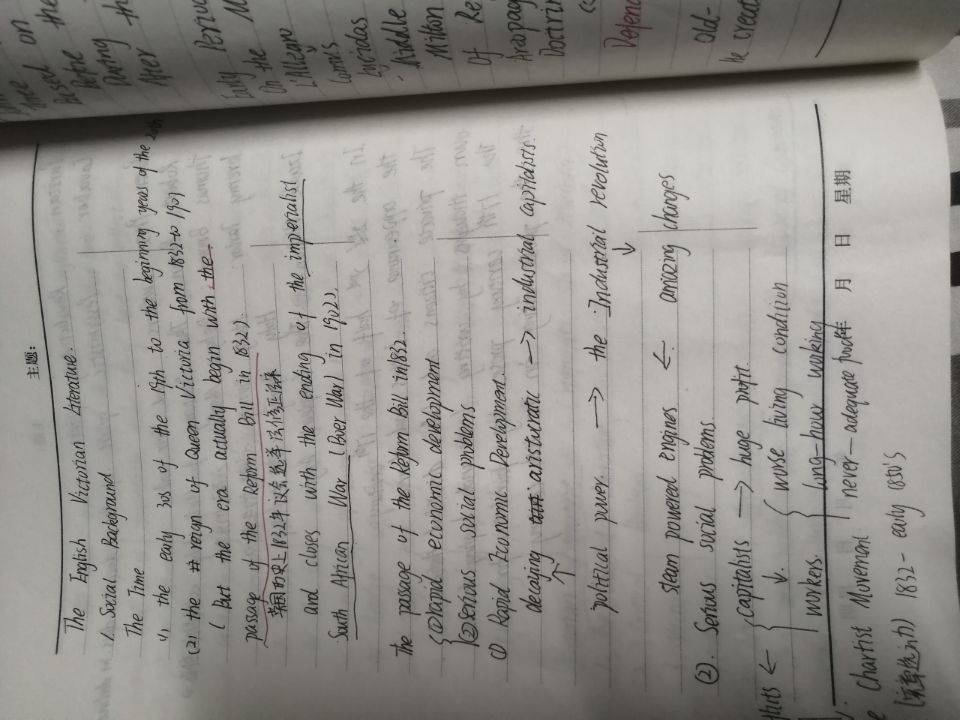 主题:
The English Victorian Literature.
1、Social Background
The Time
1) the early 30s of the 19th to the beginning years of the 20th
(2) the reign of Queen Victoria from 1832 to 1901
( but the era actually begin with the
passage of the Reform Bill in 1832).
英国历史上1832年议会选举法修正法案
and closes with the ending of the imperialist
South African War (Boer War) in 1902).
the passage of the Reform Bill in 1832.
① Rapid economic development
② Serious social problems
(1) Rapid Economic Development
decaying aristocratic → industrial capitalists.
↑
political power. → the Industrial revolution
↓
steam powered engines ← amazing changes
(2). Serious social problems
capitalists → huge profit.
← ↓ worse living condition
workers. long-hour working
never — adequate
Chartist Movement
1832 - early 1850's
年 月 日 星期
These on
Based on the
Before the
During the
After the
Early Period
On the
L'Allegro
Comus
Lycidas
Middle
Milton
Of Re
Areopag
Doctrin
Defenc
old-
he create